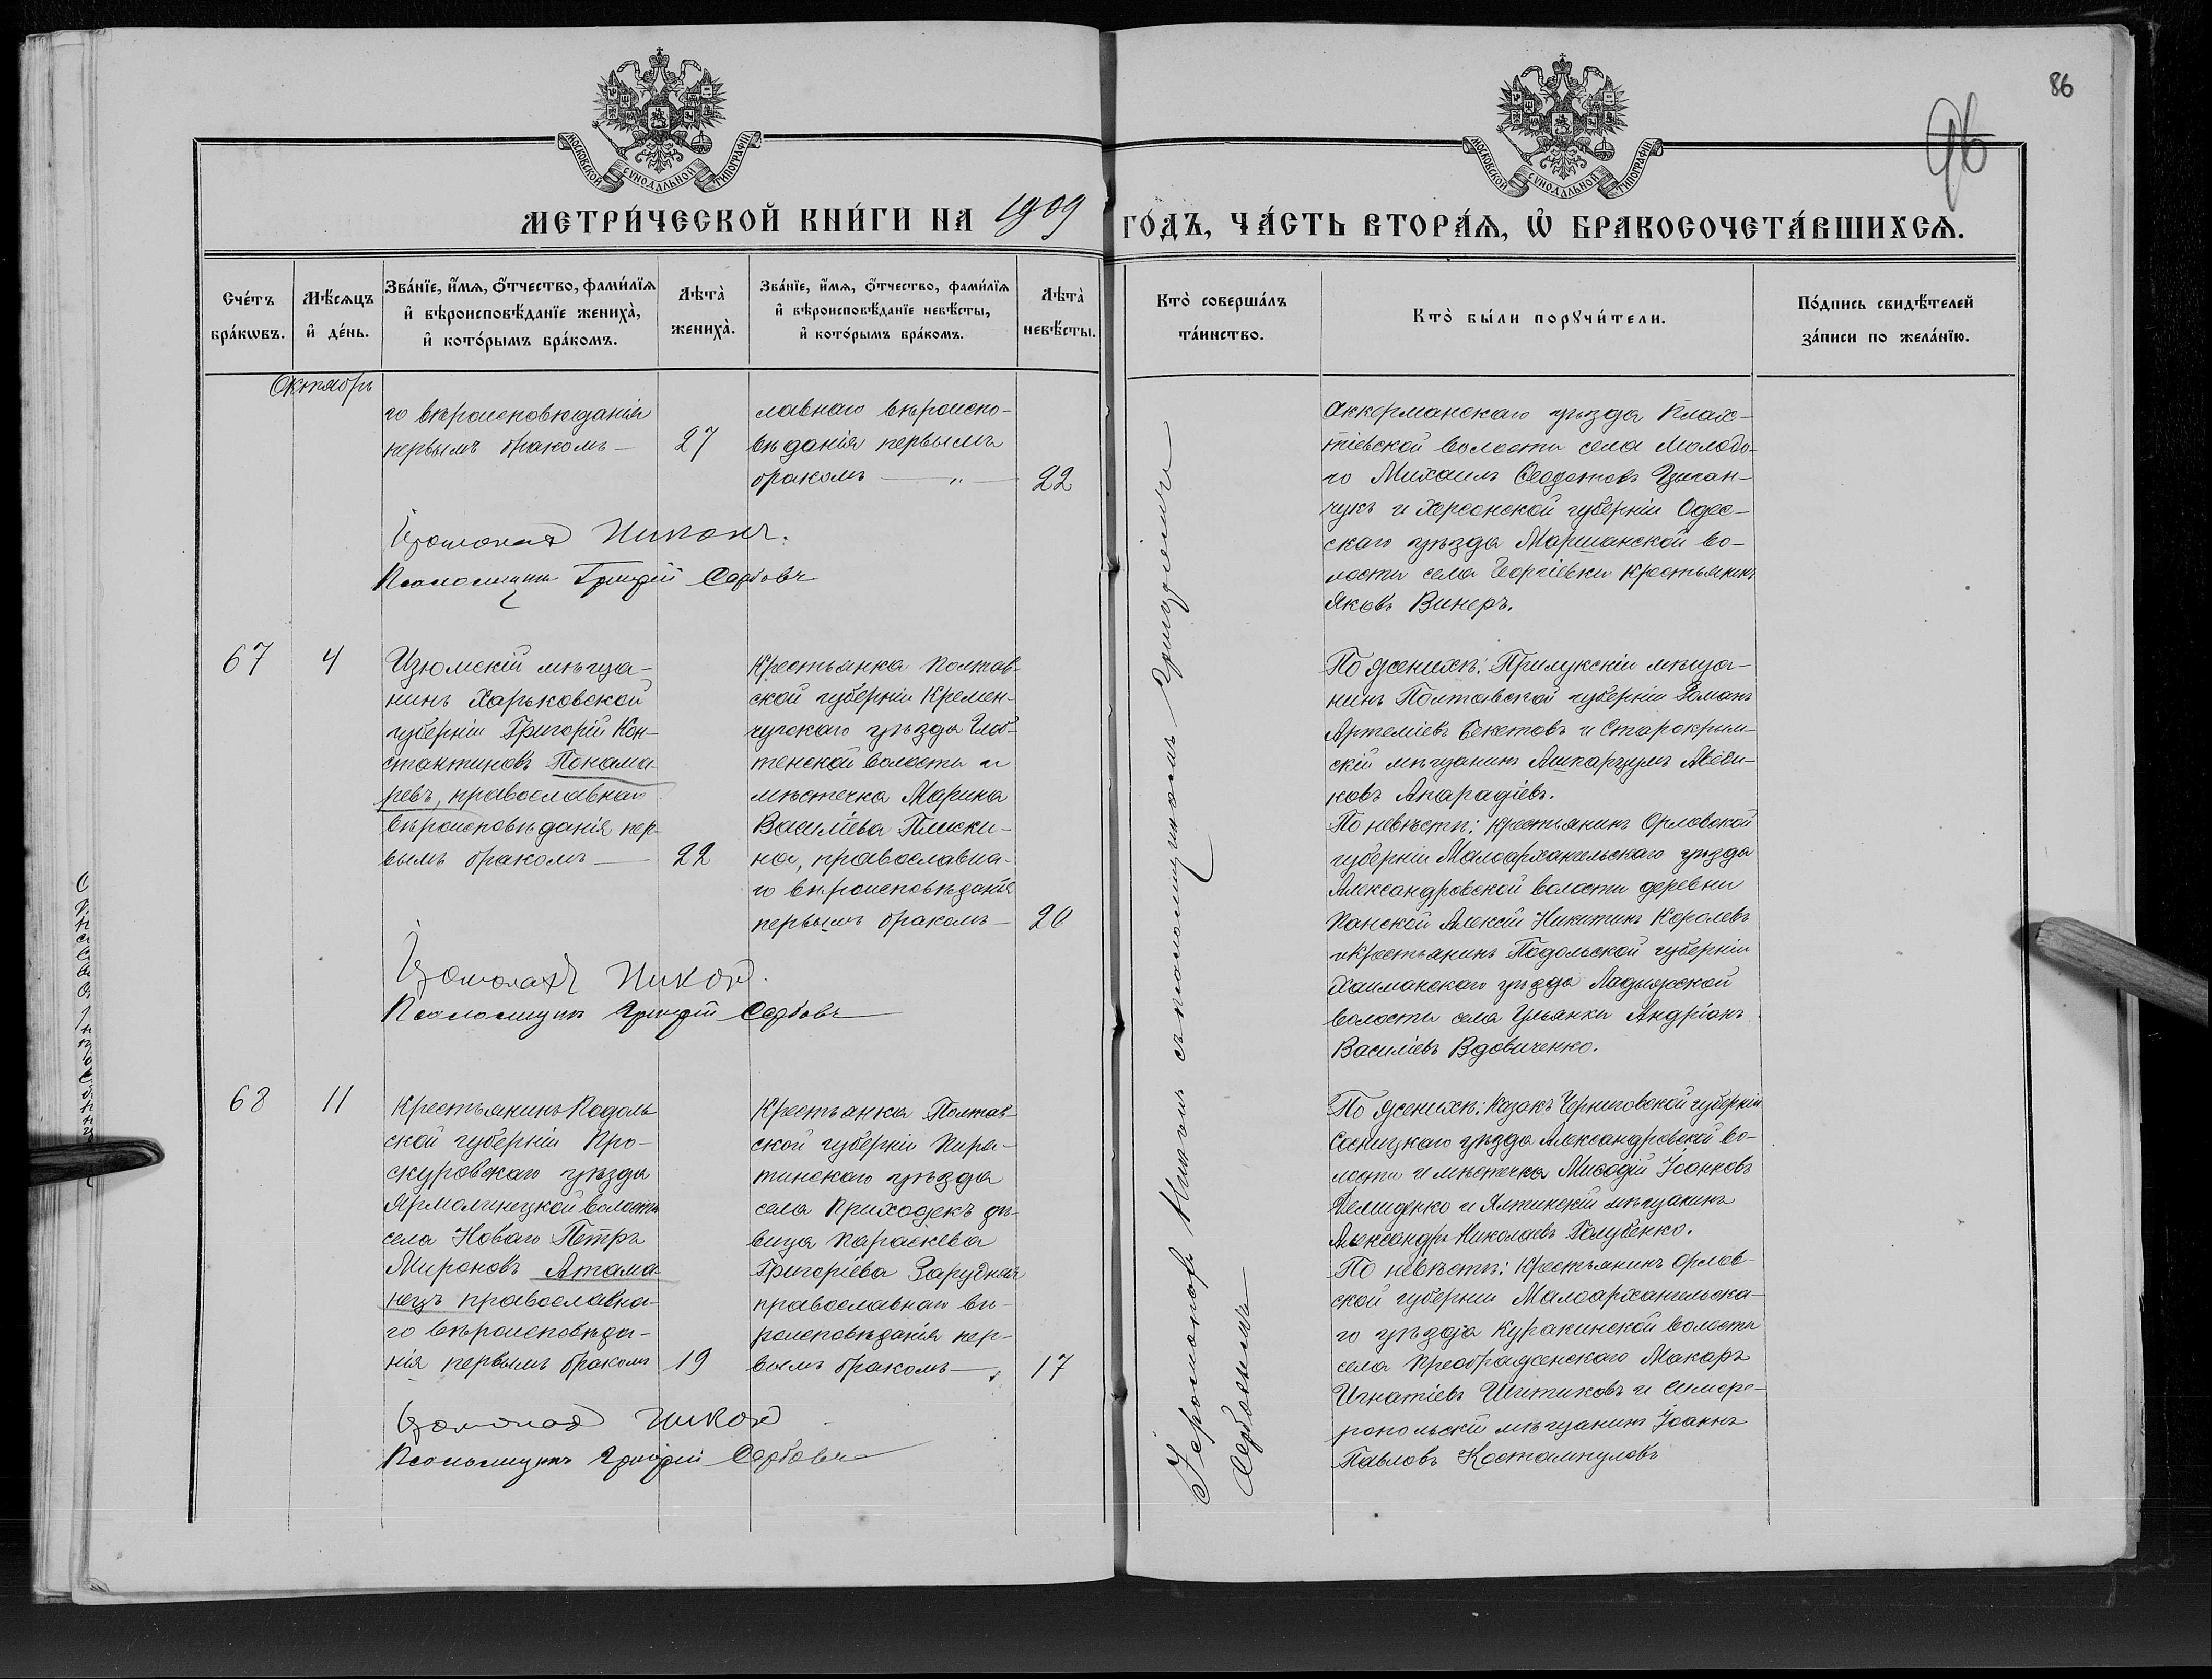 86
96
МОСКОВСКОЙ СѴНОДАЛЬНОЙ ТИПОГРАФІИ
МОСКОВСКОЙ СѴНОДАЛЬНОЙ ТИПОГРАФІИ
МЕТРИ́ЧЕСКОЙ КНИ́ГИ НА 1909 ГО́ДЪ, ЧА́СТЬ ВТОРА́Ѧ, Ѡ҆ БРАКОСОЧЕТА́ВШИХСѦ.
Сче́тъ бра́кѡвъ.
Мѣ́сѧцъ и҆ де́нь.
Зва́нїе, и҆́мѧ, ѻ҆́тчество, фами́лїѧ
и҆ вѣроисповѣ́данїе жениха̀,
и҆ кото́рымъ бра́комъ.
Лѣта̀ жениха̀.
Зва́нїе, и҆́мѧ, ѻ҆́тчество, фами́лїѧ
и҆ вѣроисповѣ́данїе невѣ́сты,
и҆ кото́рымъ бра́комъ.
Лѣта̀ невѣ́сты.
Кто̀ соверша́лъ
та́инство.
Кто̀ бы́ли порꙋчи́тели.
По́дпись свидѣ́телей
за́писи по жела́нїю.
Октябрь
го вѣроисповѣданія
первымъ бракомъ —
27
славнаго вѣроиспо-
вѣданія первымъ
бракомъ — „ —
22
Аккерманскаго уѣзда Плах-
тіевской волости села Молодо-
го Михаилъ Ѳеодотовъ Цыган-
чукъ и Херсонской губерніи Одес-
скаго уѣзда Маршанской во-
лости села Георгіевки крестьянинъ
Яковъ Винеръ.
Іеромонахъ Никонъ.
Псаломщикъ Григорій Сербовъ
67
4
Изюмскій мѣща-
нинъ Харьковской
губерніи Григорій Кон-
стантиновъ Понама-
ревъ, православнаго
вѣроисповѣданія пер-
вымъ бракомъ —
22
Крестьянка Полтав-
ской губерніи Кремен-
чугскаго уѣзда
волости и
мѣстечка Марина
Василіева Плиски-
на, православна-
го вѣроисповѣданія
первымъ бракомъ —
20
По женихѣ: Прилукскій мѣща-
нинъ Полтавской губерніи Романъ
Артеміевъ Бекетовъ и Старокрым-
скій мѣщанинъ
Апарадіевъ.
По невѣстѣ: крестьянинъ Орловской
губерніи Малоархангельскаго уѣзда
Александровской волости деревни
Панской Алексій Никитинъ Королевъ
и крестьянинъ Подольской губерніи
уѣзда Ладыжской
волости села Ульянки Андріанъ
Василіевъ Вдовиченко.
Іеромонахъ Никонъ.
Псаломщикъ Григорій Сербовъ
68
11
Крестьянинъ Подоль-
ской губерніи Про-
скуровскаго уѣзда
Ярмолинецкой волости
села Новаго Петръ
Мироновъ Атама-
нецъ православна-
го вѣроисповѣда-
нія первымъ бракомъ
19
Крестьянка Полтав-
ской губерніи Пиря-
тинскаго уѣзда
села Приходекъ дѣ-
вица Параскева
Григоріева Зарудная
православнаго вѣ-
роисповѣданія пер-
вымъ бракомъ —
17
По женихѣ: Казакъ Черниговской губерніи
Сосницкаго уѣзда Александровской во-
лости и мѣстечка Миѳодій Іоанновъ
Демиденко и Ялтинскій мѣщанинъ
Александръ Николаевъ Голубенко.
По невѣстѣ: крестьянинъ Орлов-
ской губерніи Малоархангельска-
го уѣзда Куракинской волости
села Преображенскаго Макаръ
Игнатіевъ Шитиковъ и Симфе-
ропольскій мѣщанинъ Іоаннъ
Павловъ Костомпуловъ
Іеромонахъ Никонъ
Псаломщикъ Григорій Сербовъ
Іеромонахъ Никонъ съ псаломщикомъ Григоріемъ
Сербовымъ